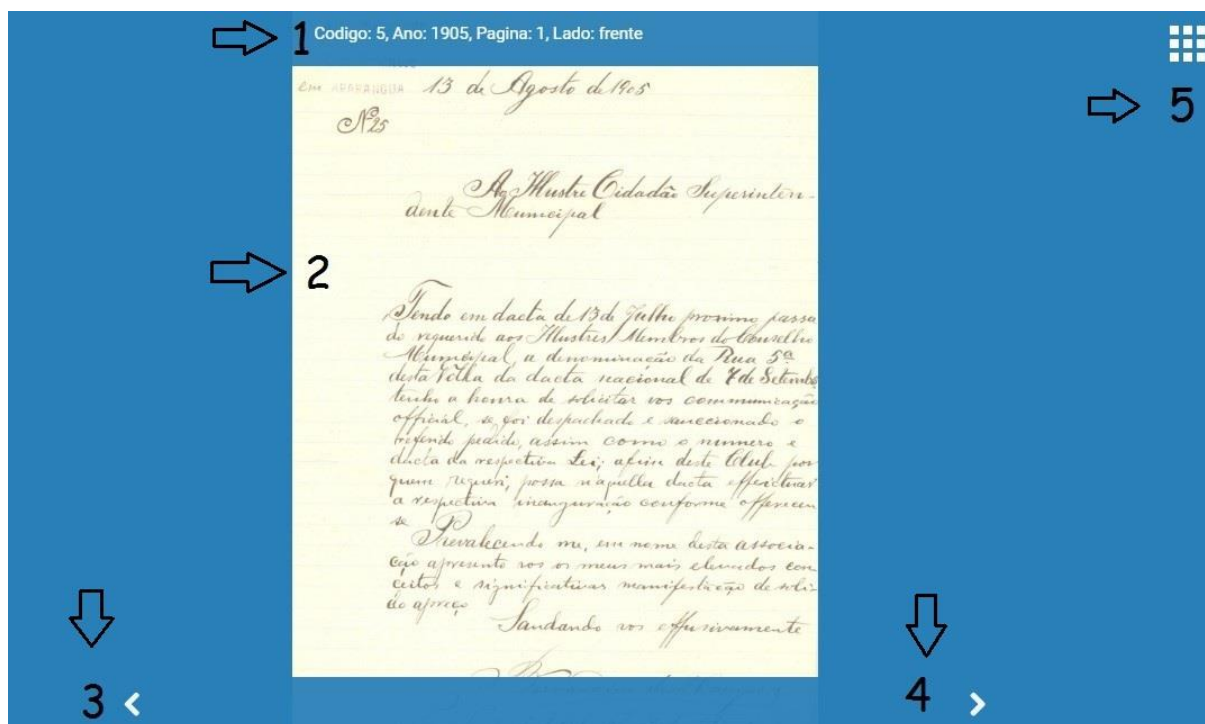 1 Codigo: 5, Ano: 1905, Pagina: 1, Lado: frente
em ARARANGUA 13 de Agosto de 1905
Nº 25
5
Ao Illustre Cidadão Superinten-
dente Municipal
2
Tendo em dacta de 13 de Julho proximo passa
do requerido aos Illustres Membros do Conselho
Municipal, a denominação da Rua 5ª
desta Villa da dacta nacional de 7 de Setembro
tenho a honra de solicitar vos communicação
official, se foi despachado e sanccionado o
referido pedido, assim como o numero e
dacta da respectiva Lei; afim deste Club por
quem requeri, possa n'aquella dacta effectuar
a respectiva inauguração conforme offereceu
se
Prevalecendo me, em nome desta associa-
ção apresento vos os meus mais elevados con
ceitos e significativas manifestação de soli-
do apreço
Saudando vos effusivamente
3
4